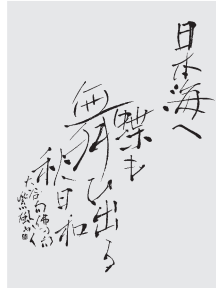 日本海へ
蝶も
舞ひ出る
秋日和